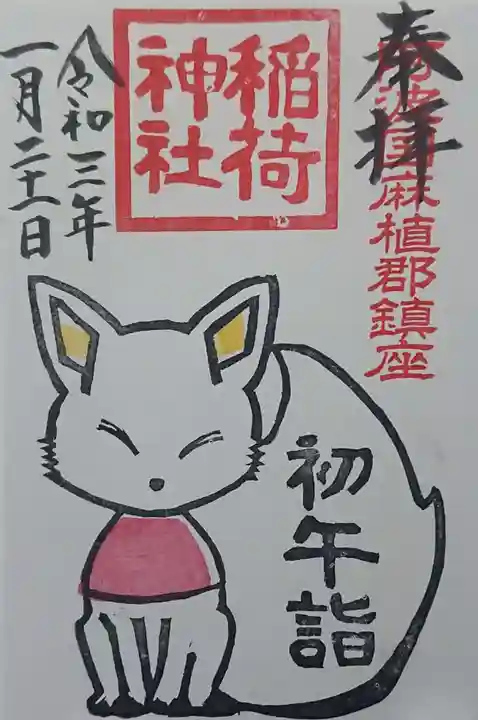 奉拝
阿波国麻植郡鎮座
稲荷
神社
令和三年
一月二十一日
初午詣